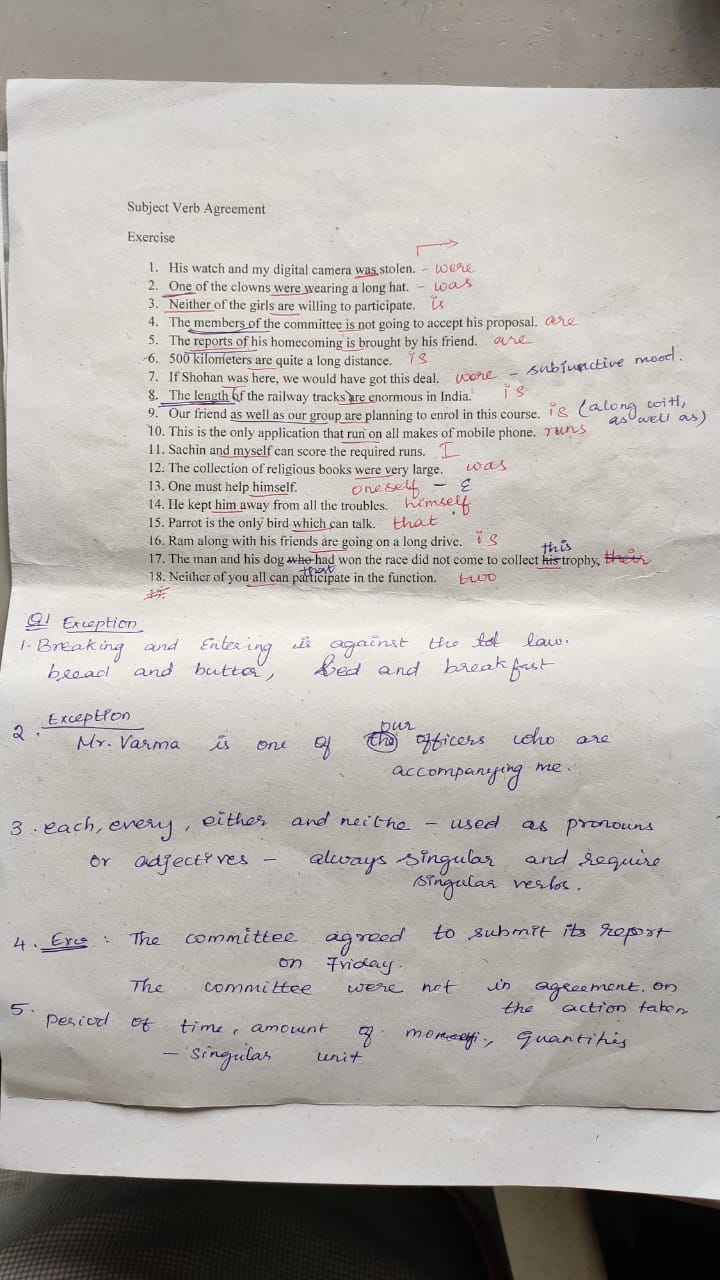 Subject Verb Agreement
Exercise
1. His watch and my digital camera was stolen. - were
2. One of the clowns were wearing a long hat. - was
3. Neither of the girls are willing to participate. is
4. The members of the committee is not going to accept his proposal. are
5. The reports of his homecoming is brought by his friend. are
6. 500 kilometers are quite a long distance. is
7. If Shohan was here, we would have got this deal. were - subjunctive mood.
8. The length of the railway tracks are enormous in India. is
9. Our friend as well as our group are planning to enrol in this course. is (along with,
as well as)
10. This is the only application that run on all makes of mobile phone. runs
11. Sachin and myself can score the required runs. I
12. The collection of religious books were very large. was
13. One must help himself. oneself -
14. He kept him away from all the troubles. himself
15. Parrot is the only bird which can talk. that
16. Ram along with his friends are going on a long drive. is
this
17. The man and his dog who had won the race did not come to collect his trophy, their
that
18. Neither of you all can participate in the function. two
Q1 Exception
1. Breaking and Entering is against the law.
bread and butter, bed and breakfast
Exception
our
2. Mr. Varma is one of the officers who are
accompanying me.
3. each, every, either and neithe - used as pronouns
or adjectives - always singular and require
singular verbs.
4. Exce : The committee agreed to submit its report
on Friday.
The committee were not in agreement on
the action taken
5. Period of time, amount of money, quantities
- singular unit